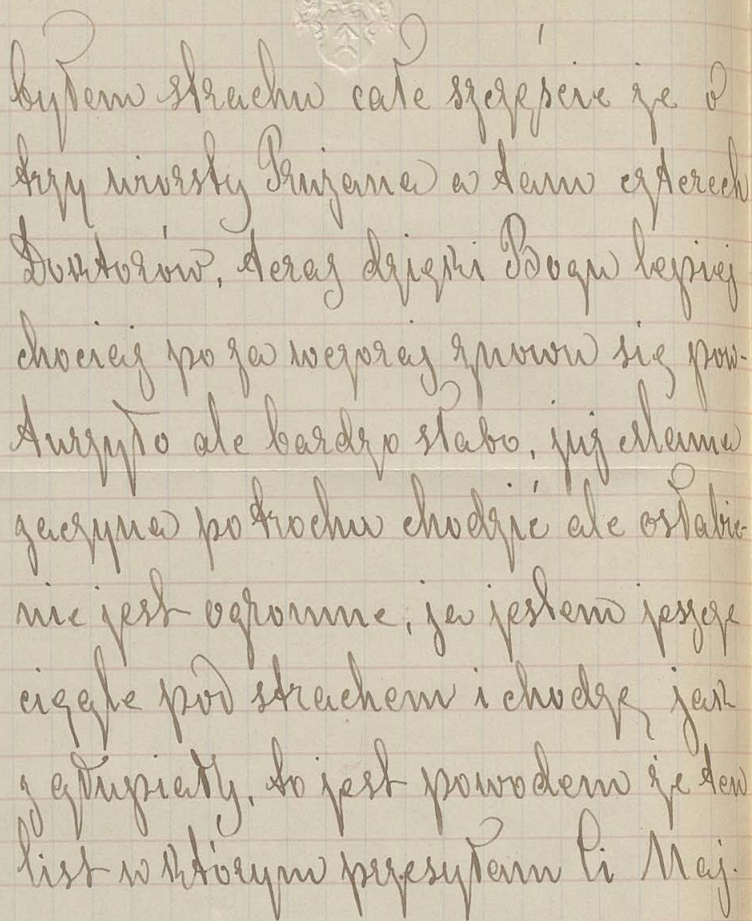 byłem strachu całe szczęście że o
trzy wiorsty Prużana a tam czterech
Doktorów, teraz dzięki Bogu lepiej
chociaż po za wczoraj znowu się pow-
turzyło ale bardzo słabo, już Mama
zaczyna potrochu chodzić ale osłabie-
nie jest ogromne, ja jestem jeszcze
ciągle pod strachem i chodzę jak
zgłupiały, to jest powodem że ten
list w którym przesyłam Ci Maj.